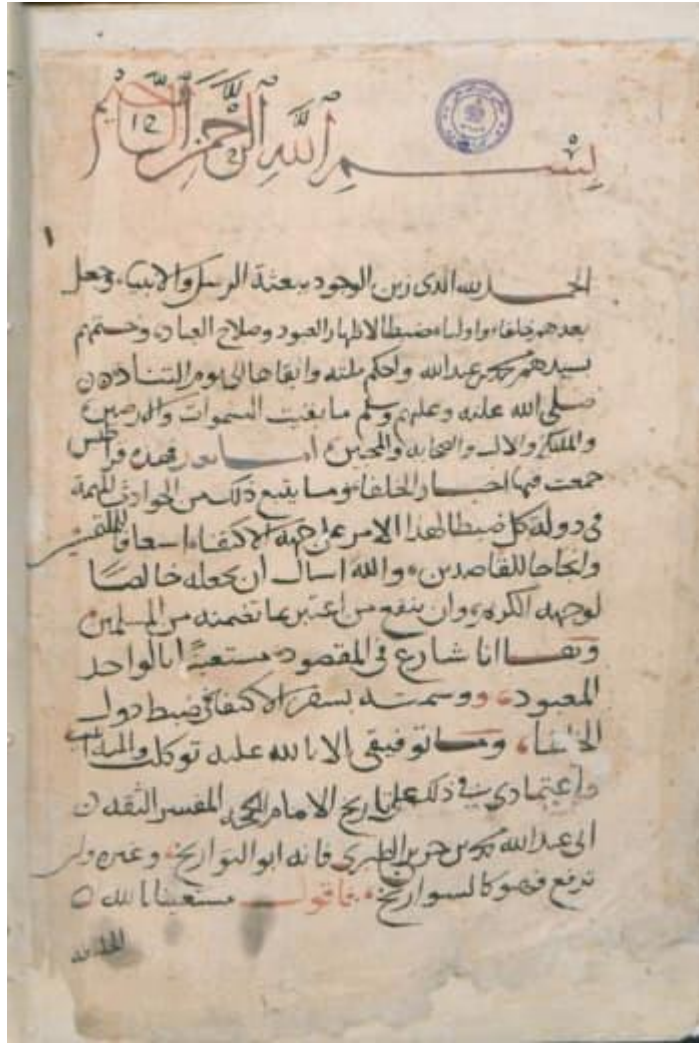 بسم الله الرحمن الرحيم
الحمد لله الذى زين الوجود ببعثة الرسل والانبياء وجعل
بعدهم خلفاء واولياء ضبطا لاظهار العبود وصلاح العباد وختمهم
بسيدهم محمد بن عبد الله واحكم ملته وابقاها الى يوم التناد
صلى الله عليه وعليهم وسلم ما بقيت السموات والارضين
والملئكة والال والصحابة والمحبين اما بعد فهذه
جمعت فيها اخبار الخلفاء وما يتبع ذلك من الحوادث المهمة
فى دولة كل ضبطا لهذا الامر على جهة الاكتفاء اسعافا
وانجاحا للقاصدين والله اسال ان يجعله خالصا
لوجهه الكريم وان ينفع من اعتبر بما تضمنه من المسلمين
وها انا شارع فى المقصود مستعينا بالواحد
المعبود ووسمته بسفر الاكتفا فى ضبط دول
الخلفا وما توفيقى الا بالله عليه توكلت
واعتمادى فى ذلك على تاريخ الامام المفسر الثقه
ابى عبد الله محمد بن جرير الطبرى فانه ابو التواريخ وغيره
ترفع فهو كالسواريخ فاقول مستعينا بالله
الحمد لله